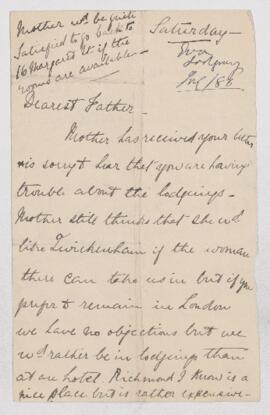 Mother wd. be quite
satisfied to go back to
16 Margaret St. if the
rooms are available -
Saturday -
Lodgings
Dearest Father -
Mother has received your letter
& is sorry to hear that you are having
trouble about the lodgings -
Mother still thinks that she wd.
like Twickenham if the woman
there can take us in but if you
prefer to remain in London
we have no objections but we
wd rather be in lodgings than
at an hotel. Richmond I know is a
nice place but is rather expensive -